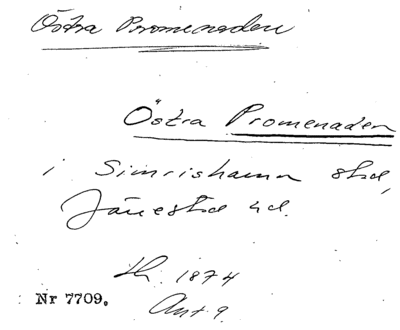 Östra Promenaden
Östra Promenaden
i Simrishamn stad,
Järrestad hd.
th. 1874
Ant. 9
Nr 7709.